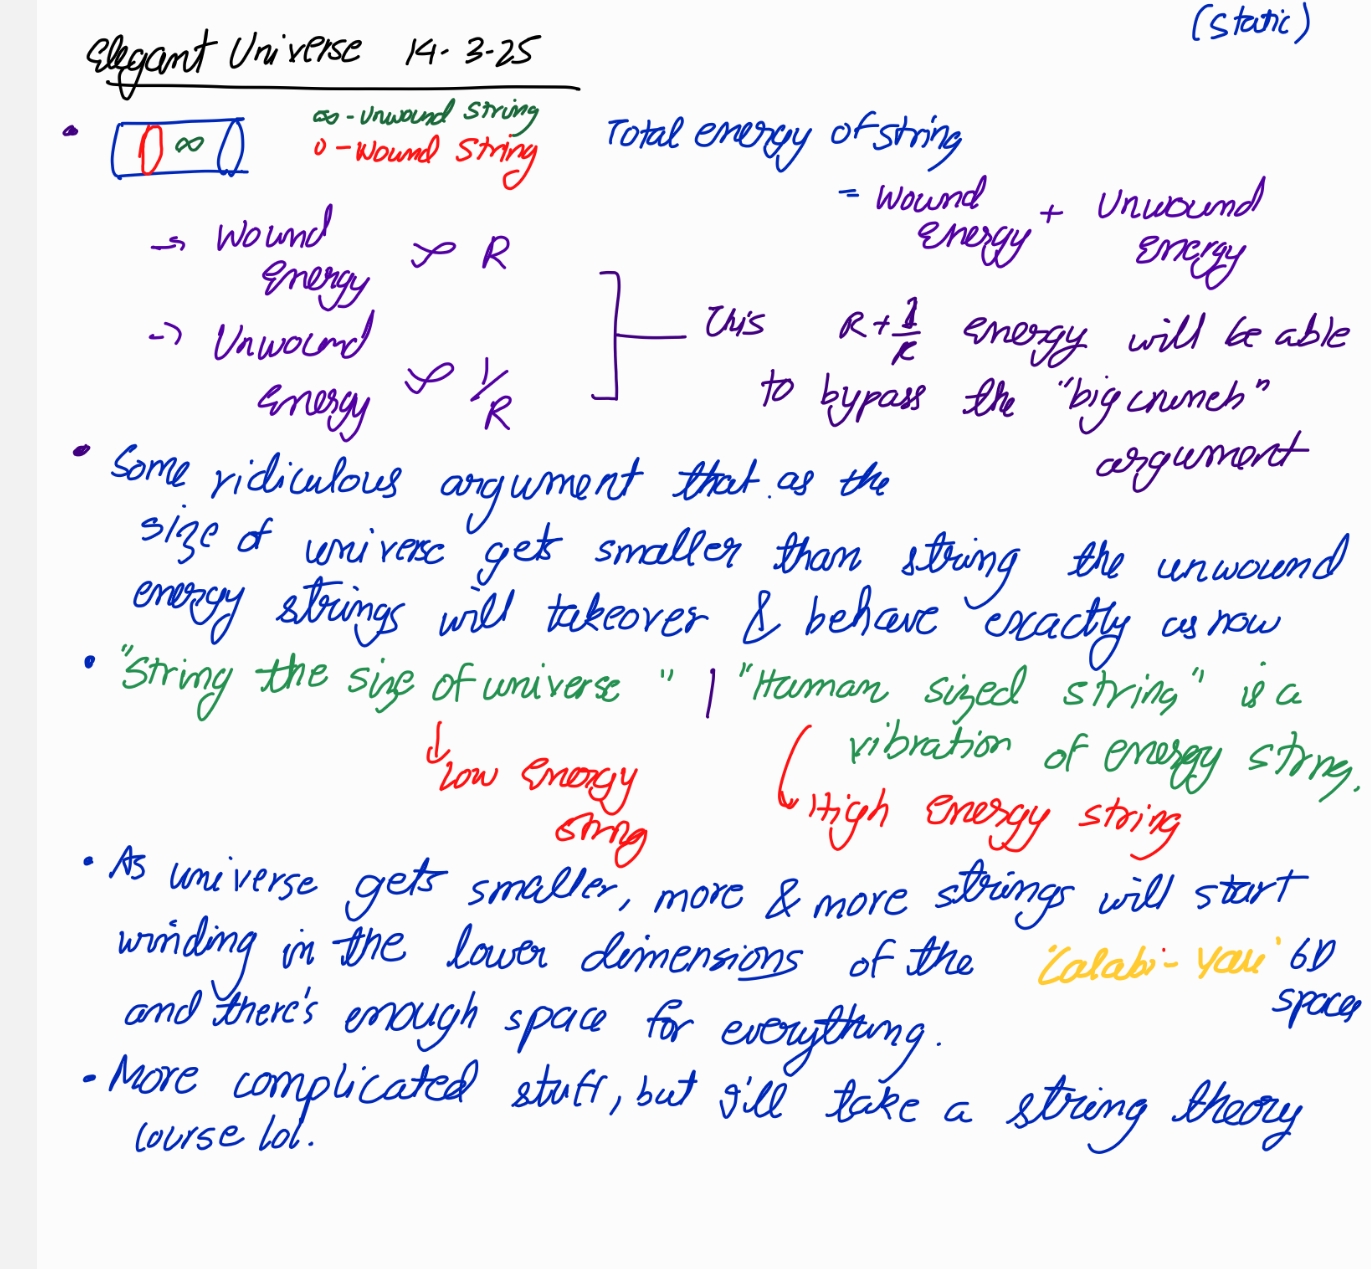 (static)
Elegant Universe 14-3-25
∞ - Unwound String
0 - Wound String
∞
Total energy of string
= Wound Energy + Unwound Energy
→ Wound Energy ∝ R
→ Unwound Energy ∝ 1/R
This R + 1/R energy will be able
to bypass the "big crunch"
argument
• Some ridiculous argument that as the
size of universe gets smaller than string the unwound
energy strings will takeover & behave exactly as now
• "String the size of universe" | "Human sized string" is a
vibration of energy string.
↓ Low Energy
string
↳ High energy string
• As universe gets smaller, more & more strings will start
winding in the lower dimensions of the 'Calabi-Yau' 6D
space
and there's enough space for everything.
• More complicated stuff, but I'll take a string theory
course lol.